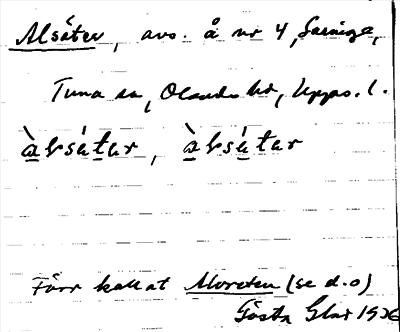 Alsäter, avs. å nr 4, Sarninge,
Tuna sn, Olands hd, Upps. l.
àlsátar, àlsátar
Förr kallat Moreten (se d.o)
Gösta Glas 1926